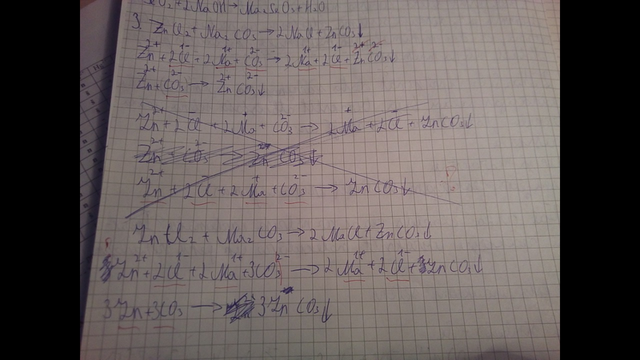 3. ZnCl₂ + Na₂CO₃ → 2NaCl + ZnCO₃↓
Zn²⁺ + 2Cl¹⁻ + 2Na¹⁺ + CO₃²⁻ → 2Na¹⁺ + 2Cl¹⁻ + Zn²⁺CO₃²⁻↓
Zn²⁺ + CO₃²⁻ → Zn²⁺CO₃²⁻↓
Zn²⁺ + 2Cl⁻ + 2Na⁺ + CO₃²⁻ → 2Na⁺ + 2Cl⁻ + ZnCO₃↓
Zn²⁺ CO₃²⁻ → ZnCO₃↓
Zn²⁺ + 2Cl⁻ + 2Na⁺ + CO₃²⁻ → ZnCO₃↓
ZnCl₂ + Na₂CO₃ → 2NaCl + ZnCO₃↓
3Zn²⁺ + 2Cl¹⁻ + 2Na¹⁺ + 3CO₃²⁻ → 2Na¹⁺ + 2Cl¹⁻ + 3ZnCO₃↓
3Zn + 3CO₃ → 3ZnCO₃↓